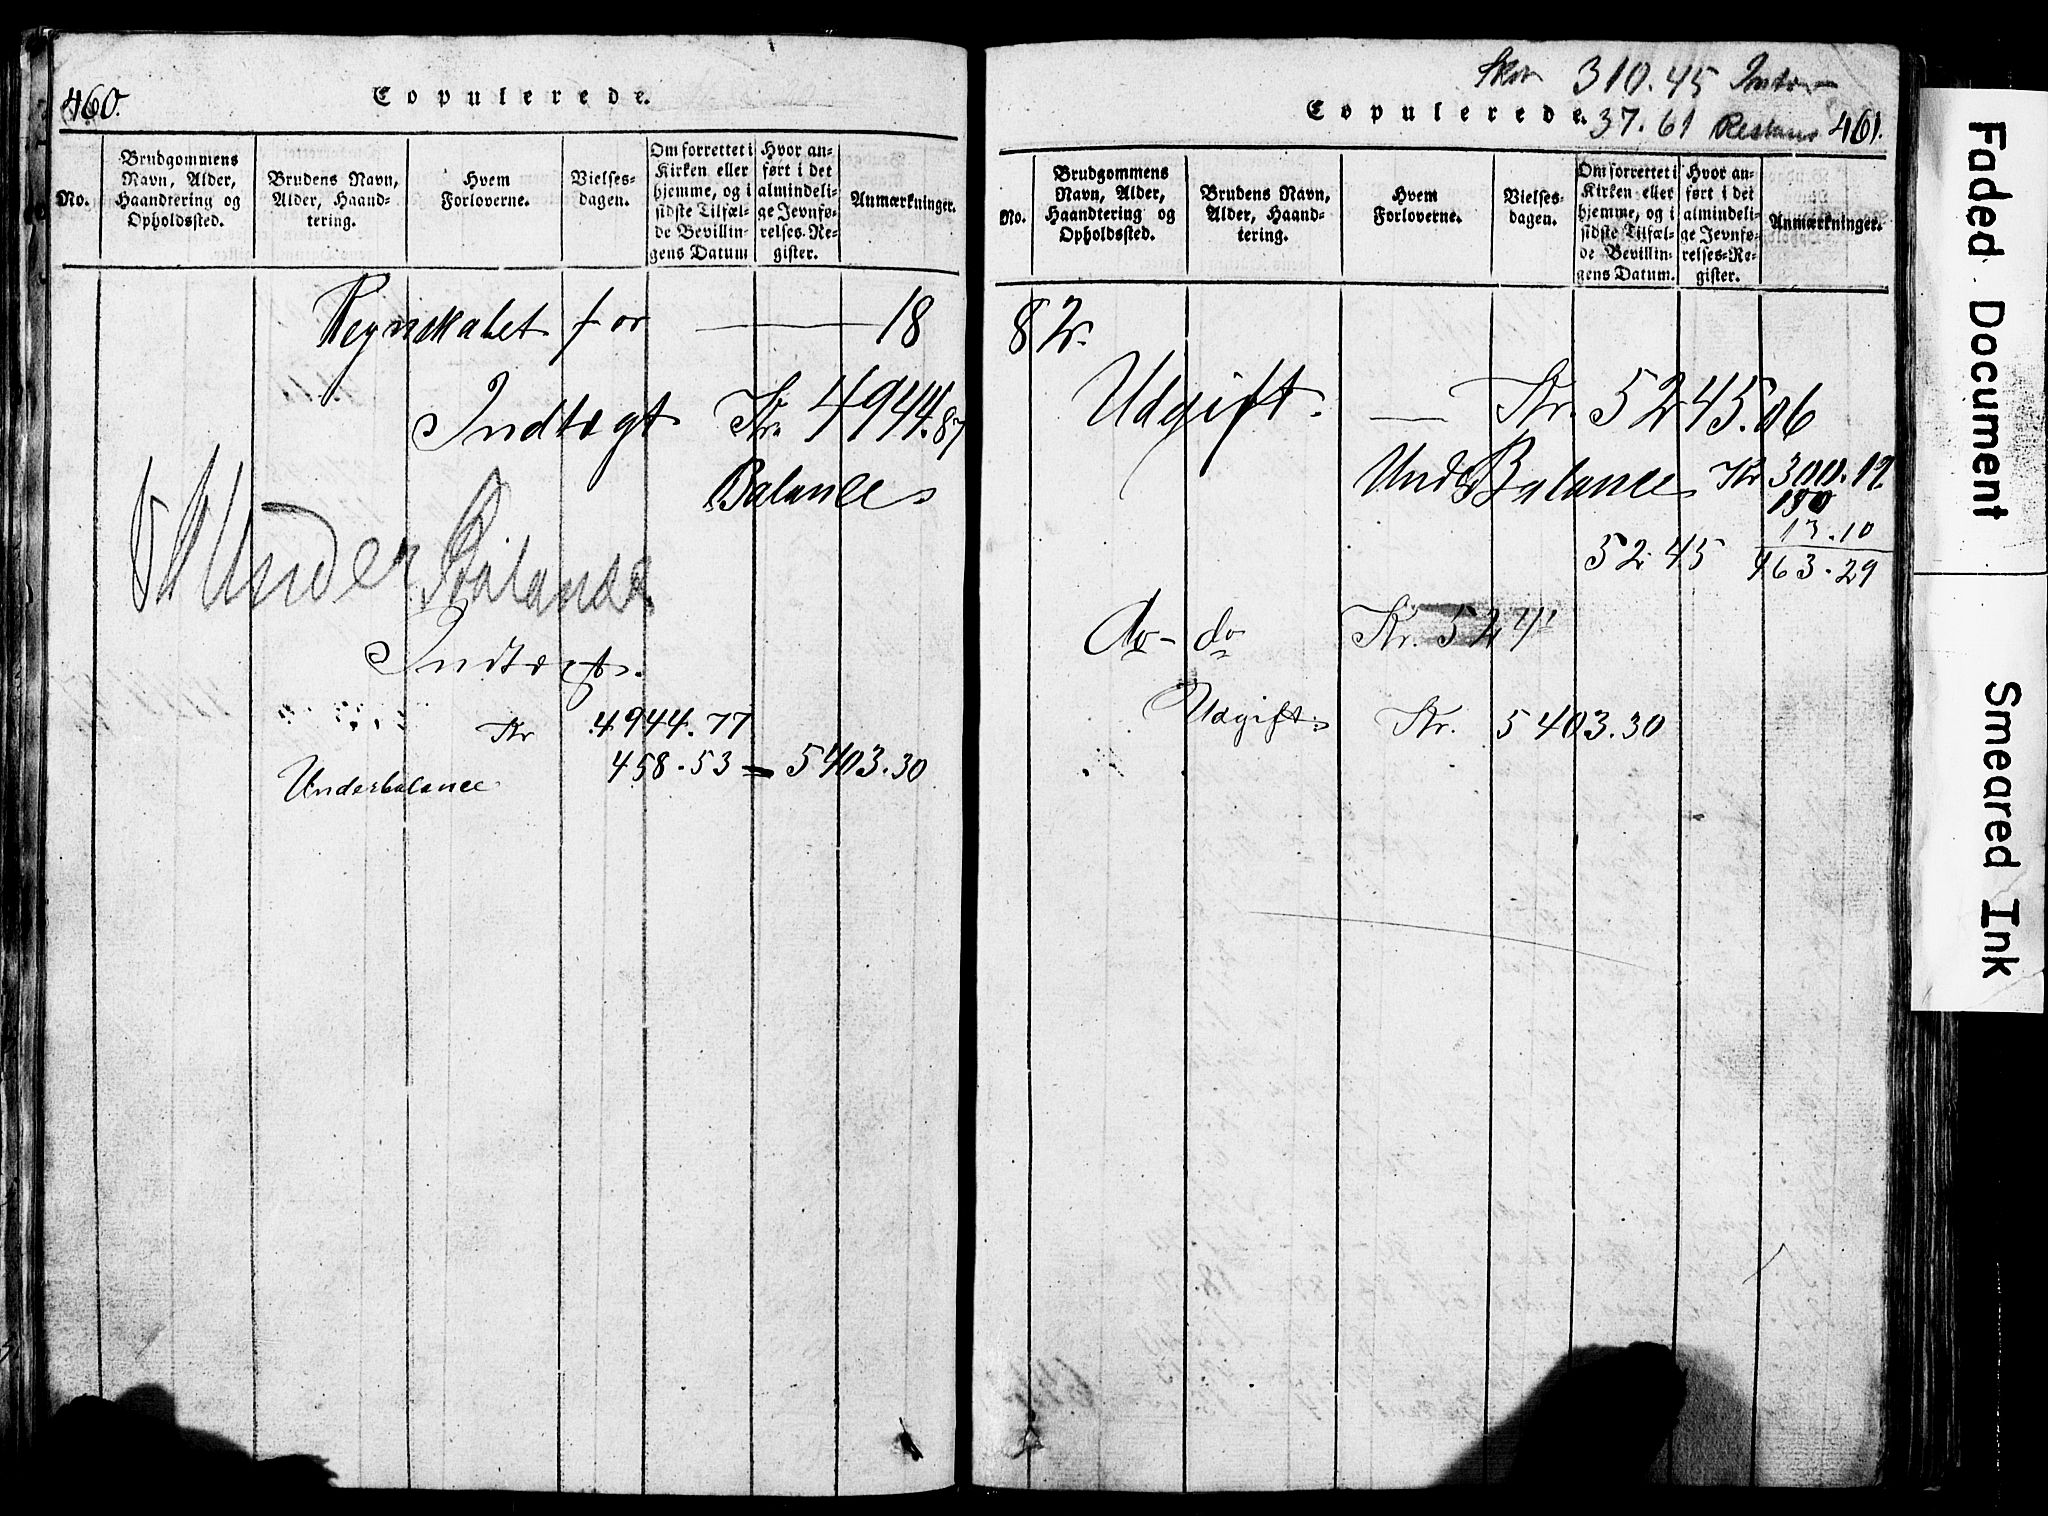 460.
Copulerede.
No.
Brudgommens Navn, Alder, Haandtering og Opholdssted.
Brudens Navn, Alder, Haand-
tering.
Hvem
Forloverne.
Vielses-
dagen.
Om forrettet i
Kirken eller
hjemme, og i
sidste Tilfæl-
de Bevillin-
gens Datum
Hvor an-
ført i det
almindeli-
ge Jevnfø-
relses-Re-
gister.
Anmærkninger.
Regnskabet for — 18
Indtægt Kr. 4944.87
Balance
Under Balance
Indtægt.
Kr 4944.77
Underbalance 458.53 = 5403.30
310.45
Copulerede.
37.61 Restans 461.
No.
Brudgommens
Navn, Alder,
Haandtering og
Opholdssted.
Brudens Navn,
Alder, Haand-
tering.
Hvem
Forloverne.
Vielses-
dagen.
Om forrettet i
Kirken eller
hjemme, og i
sidste Tilfæl-
de Bevillin-
gens Datum.
Hvor an-
ført i det
almindeli-
ge Jevnfø-
relses-Re-
gister.
Anmærkninger.
82.
Udgift. — Kr. 5245.06
Under Balance Kr 300.19
150
13.10
5245 463.29
do - do Kr. 524
Udgift Kr. 5403.30
Faded Document
Smeared Ink